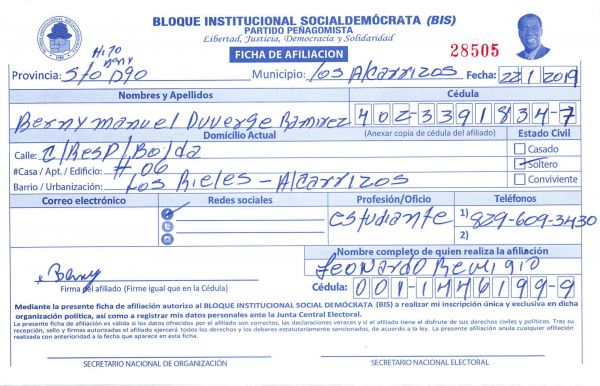 BLOQUE INSTITUCIONAL SOCIALDEMÓCRATA (BIS)
PARTIDO PEÑAGOMISTA
Libertad, Justicia, Democracia y Solidaridad
FICHA DE AFILIACION
28505
Hijo
Berny
Provincia: Sto Dgo Municipio: Los Alcarrizos Fecha: 22/1/2019
Nombres y Apellidos Cédula
Berny manuel Duverge Ramirez 402-3391834-7
Domicilio Actual (Anexar copia de cédula del afiliado) Estado Civil
Calle: C/Resp/Bolda Casado
#Casa / Apt. / Edificio: # 06 Soltero
Barrio / Urbanización: Los Rieles - Alcarrizos Conviviente
Correo electrónico Redes sociales Profesión/Oficio Teléfonos
estudiante 1) 829-609-3430
2)
Nombre completo de quien realiza la afiliación
Leonardo Remigio
Berny
Firma del afiliado (Firme igual que en la Cédula) Cédula: 001-1446199-9
Mediante la presente ficha de afiliación autorizo al BLOQUE INSTITUCIONAL SOCIAL DEMÓCRATA (BIS) a realizar mi inscripción única y exclusiva en dicha
organización política, así como a registrar mis datos personales ante la Junta Central Electoral.
La presente ficha de afiliación es válida si los datos ofrecidos por el afiliado son correctos, las declaraciones veraces y si el afiliado tiene el disfrute de sus derechos civiles y políticos. Tras su
recepción, sello y firmas autorizadas el afiliado ejercerá todos los derechos y los deberes estatutariamente sancionados, de acuerdo a la ley. La presente afiliación anula cualquier afiliación
realizada con anterioridad a la fecha que aparece en esta ficha.
SECRETARIO NACIONAL DE ORGANIZACIÓN SECRETARIO NACIONAL ELECTORAL